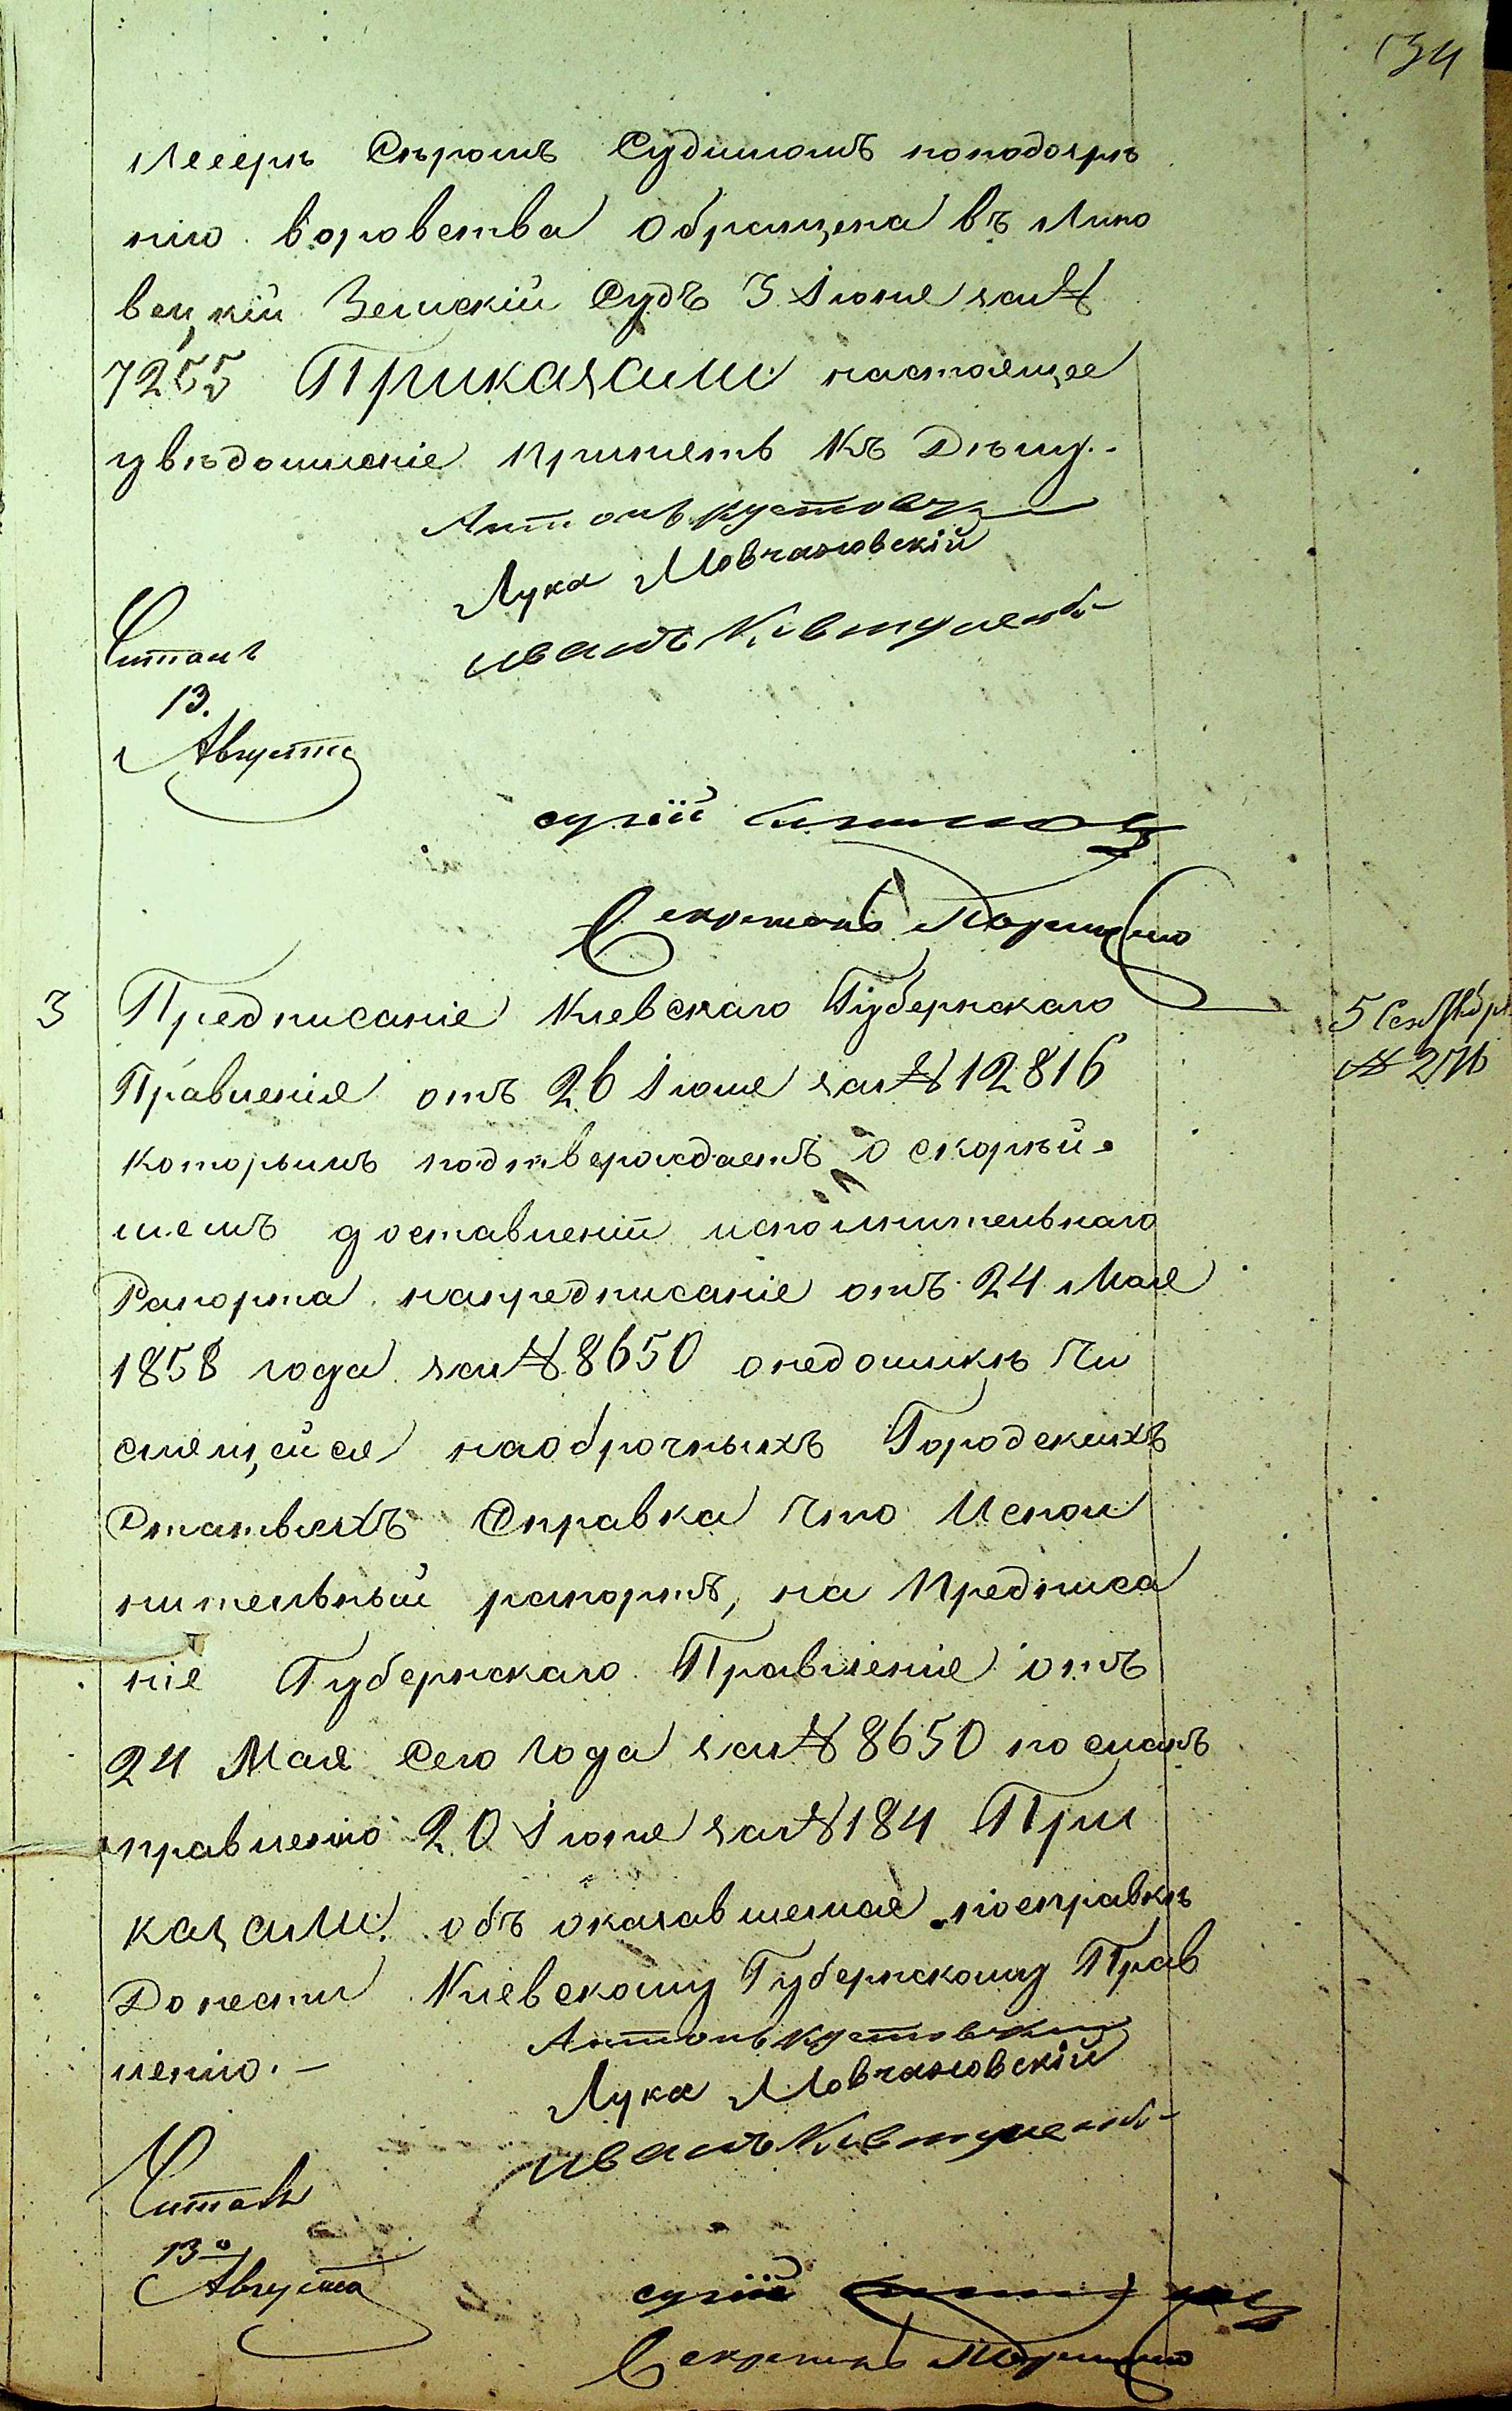 34
Лееерѣ Сѣромъ Судимомъ поподозрѣ
нію воровства обращена въ Липо
вецкій Земскій Судъ 3 Іюля за№
7255 Приказали настоящее
увѣдомленіе пріщетъ Къ Дѣлу.
Антонъ
Лука Мовчановскій
Иванъ
Читалъ
13.
Августа
Секретарь
3 Предписаніе Кіевскаго Губернскаго
5 Сентября
Правленія отъ 26 Іюля за№ 12816
№ 276
которымъ подтверждаетъ о скорѣй
шемъ доставленіи исполнительнаго
Рапорта напредписаніе отъ 24 Мая
1858 года за№ 8650 онедоимкѣ Чи
слящейся наоброчныхъ Городскихъ
Статьяхъ Справка что Испол
нительный рапортъ, на Предписа
ніе Губернскаго Правленія отъ
24 Мая сего года за№ 8650 посланъ
правленію 20 Іюля за№ 184 При
казали: объ оказавшемся посправкѣ
Донести Кіевскому Губернскому Прав
ленію. —
Антонъ
Лука Мовчановскій
Иванъ
Читалъ
13
Августа
Секретарь